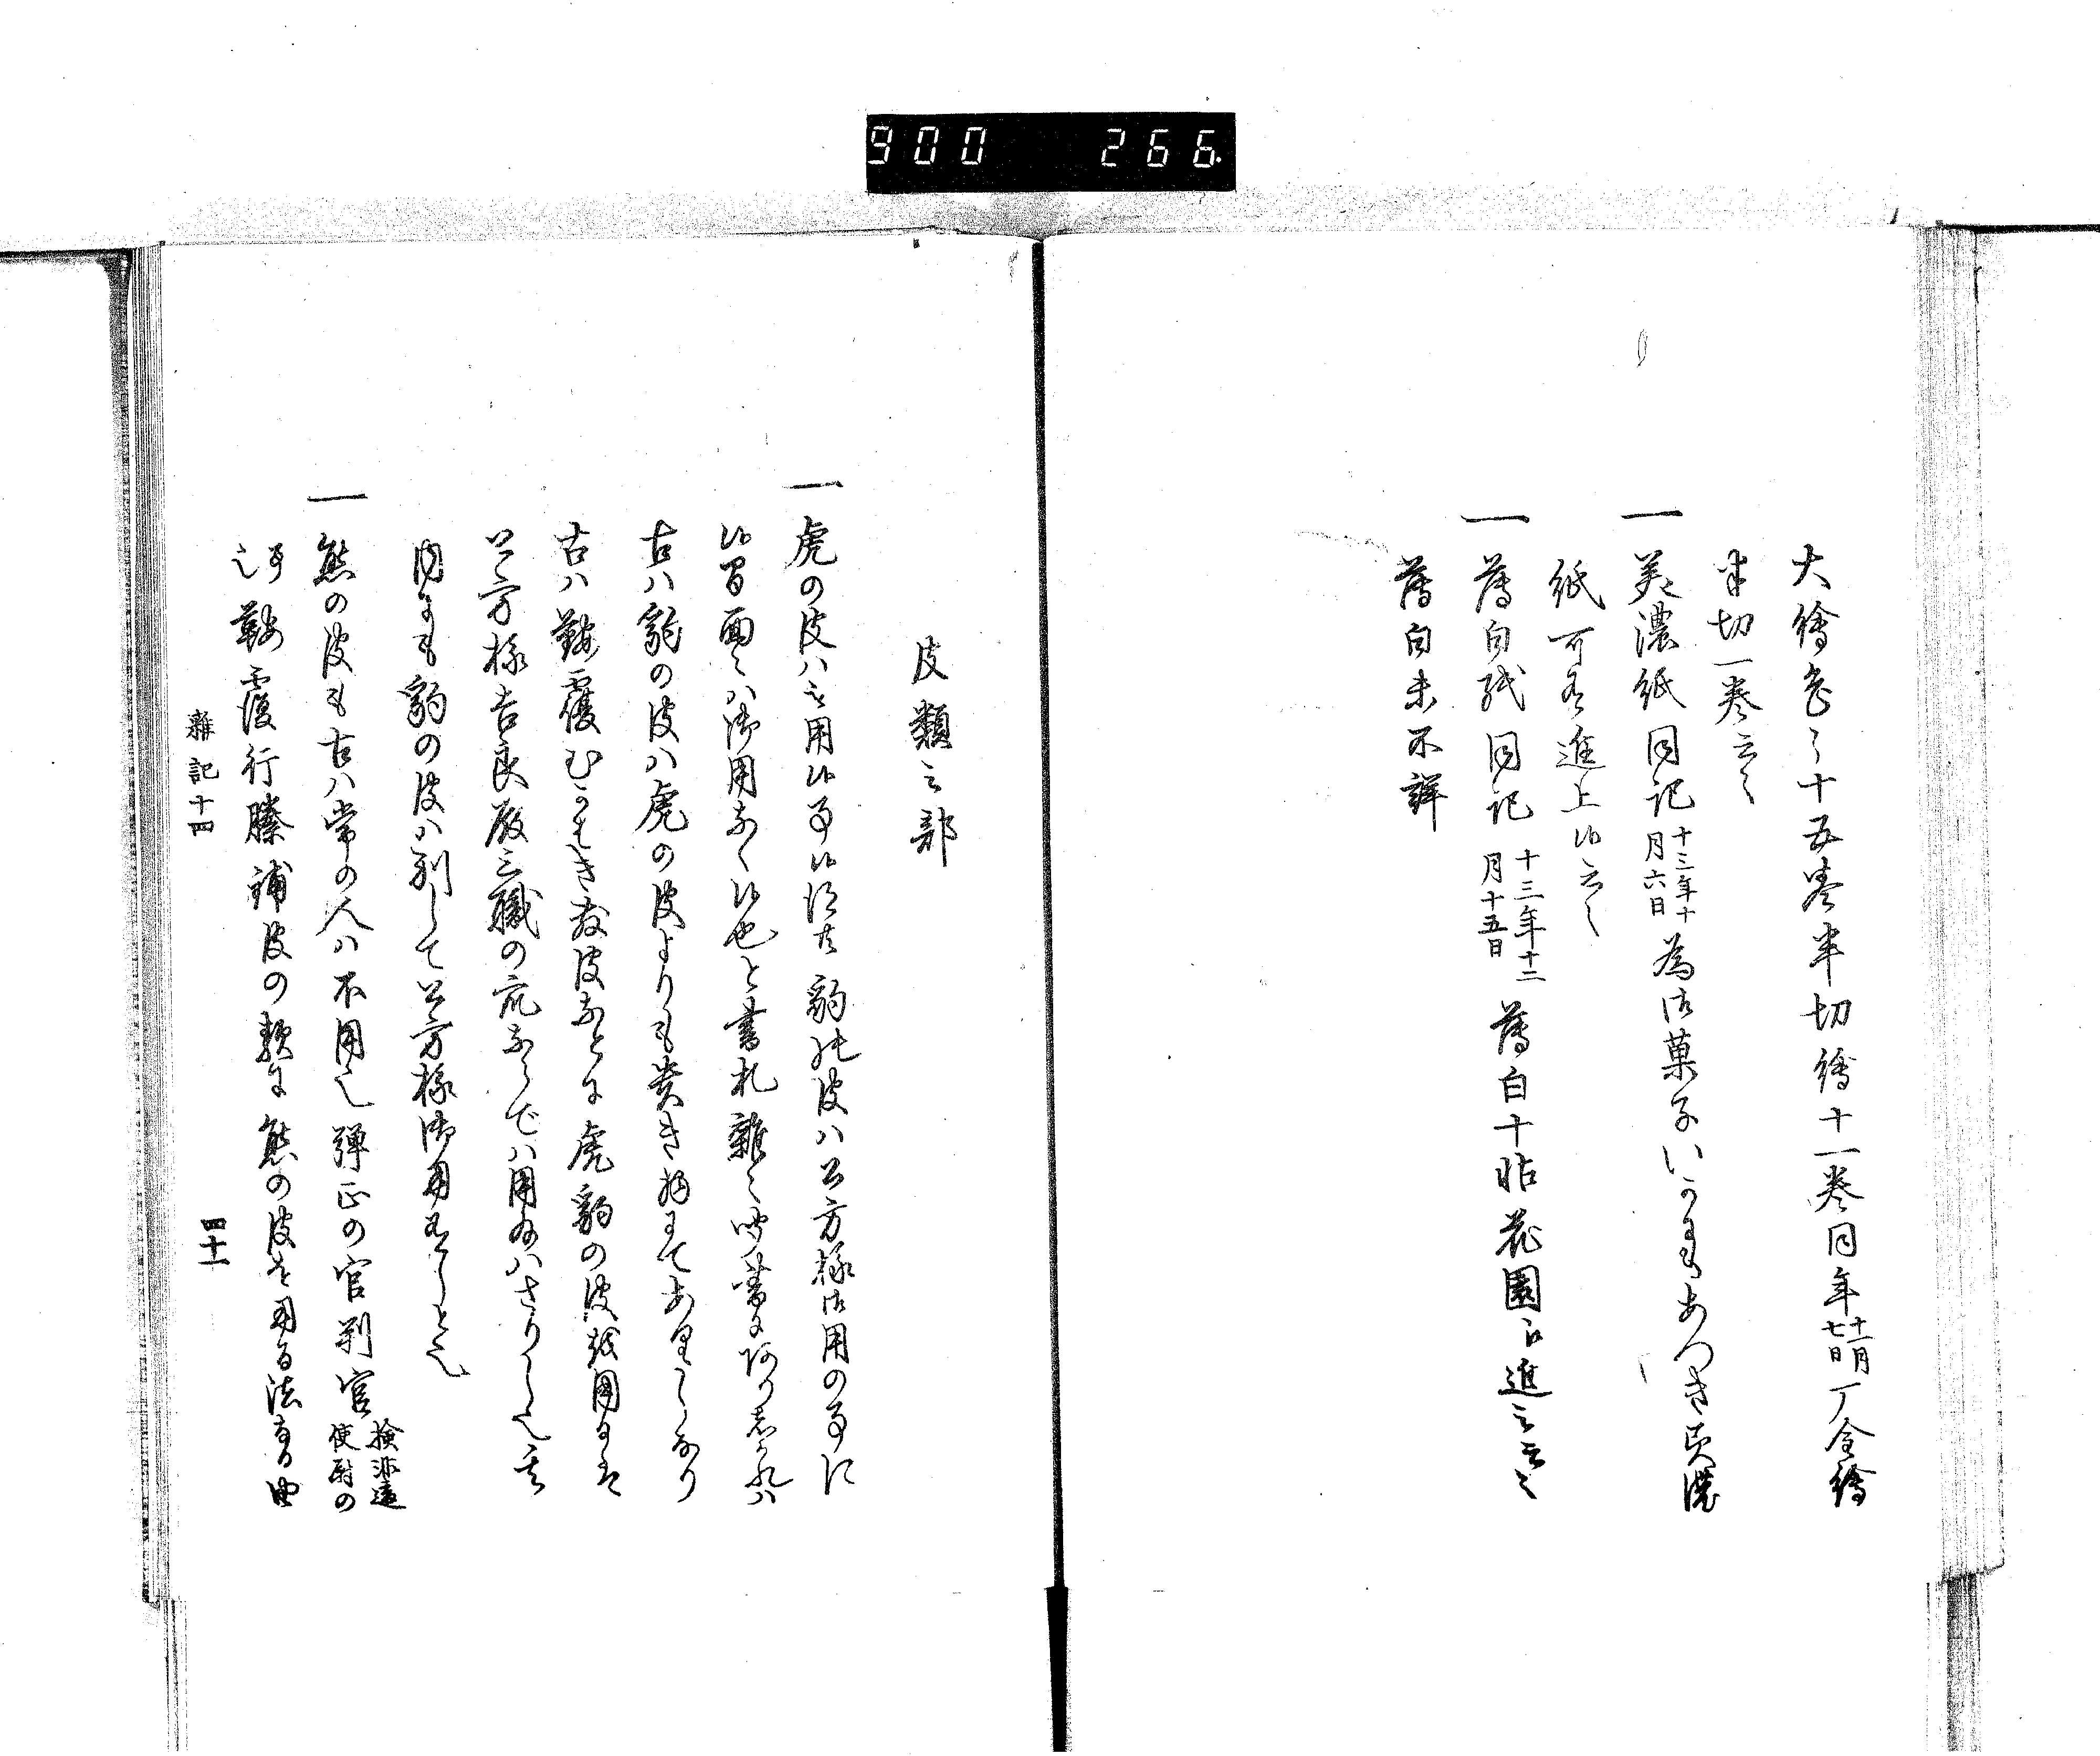 900 266
大繪色々十五巻半切繪十一巻同年十一月七日丁全繪
半切一巻云々
一美濃紙同記十三年十月六日為御菓子いかきあつき美濃
紙可有進上候云々
一薄白紙同記十三年十二月十五日薄白十帖花園に進之云々
薄白未不詳
皮類之部
一虎の皮ハ被用候事候江共豹の皮ハ公方様御用の事に
候間面々ハ御用なく候也と書札雑々聞書にありしかれハ
古ハ豹の皮ハ虎の皮よりも貴き物にてありしなり
古ハ鞍覆むかはき敷皮なとに虎豹の皮を用るは
公方様吉良殿三職の家ならでハ用ハさりし也其
内にも豹の皮ハ別して公方様御用ありしと也
一熊の皮も古ハ常の人ハ不用也弾正の官判官検非違使尉の
事也鞍覆行縢鋪皮の類に熊の皮を用る法有る由
雑記十四
四十一